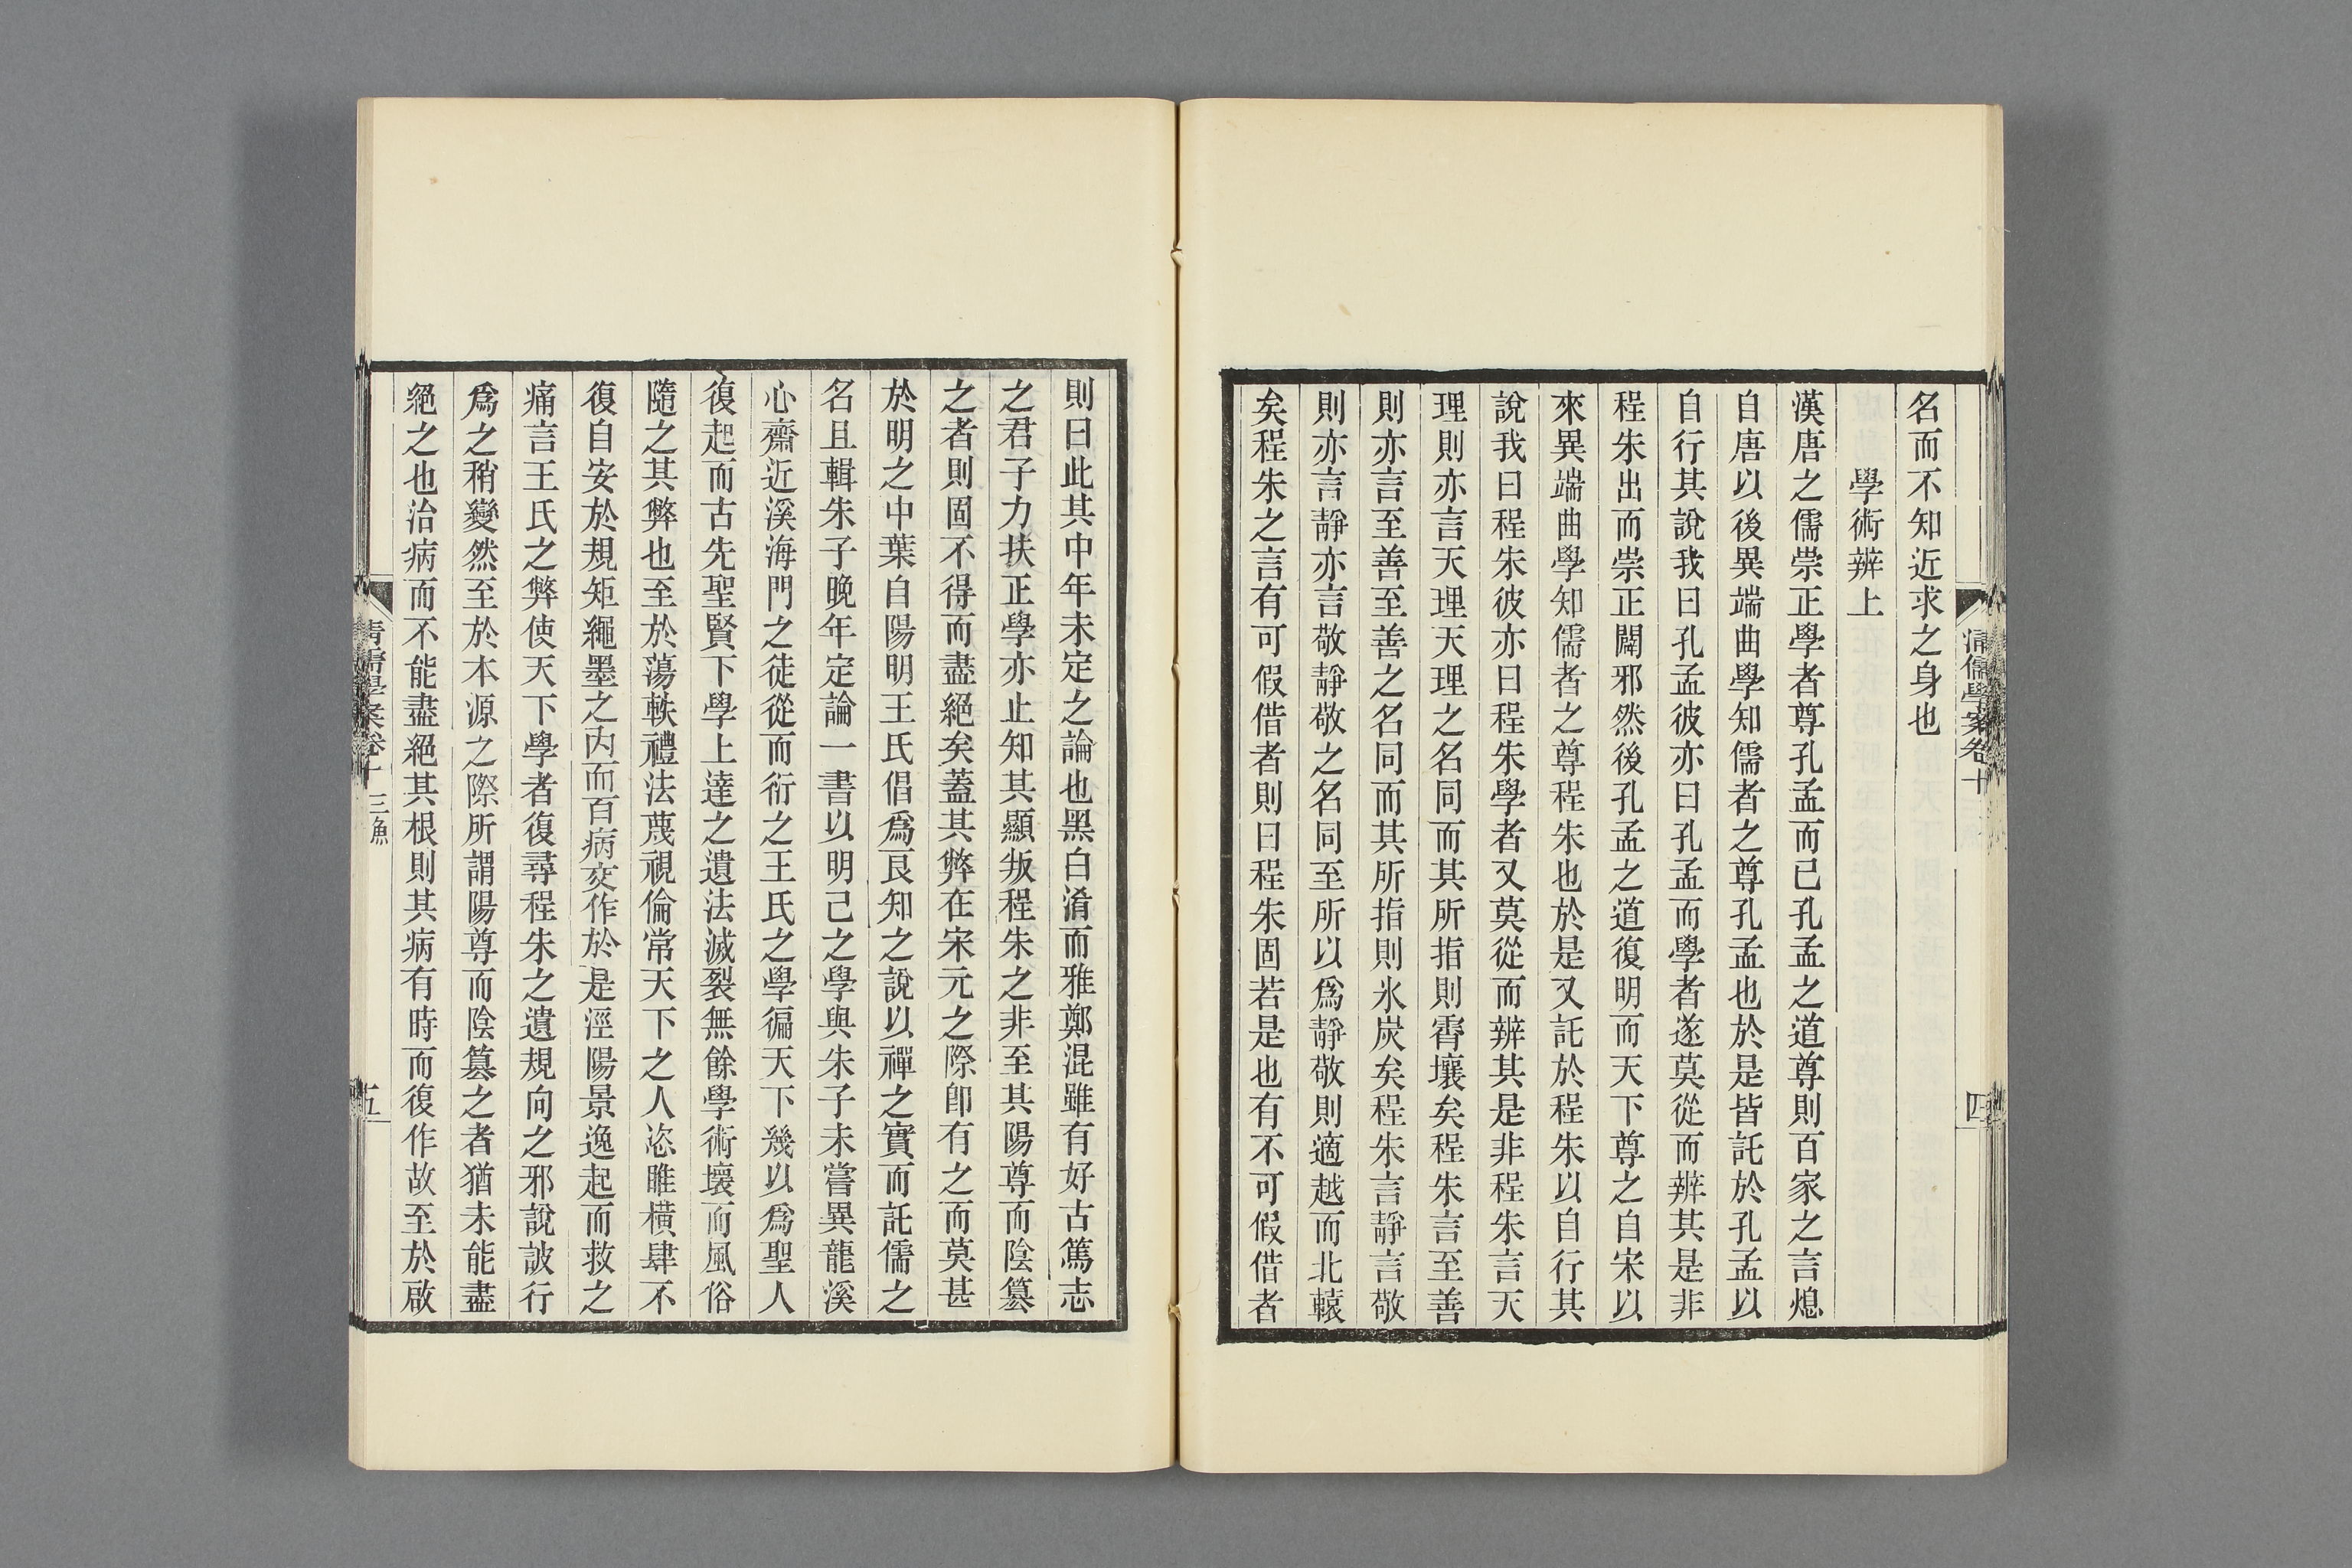 名而不知近求之身也
學術辨上
漢唐之儒崇正學者尊孔孟而已孔孟之道尊則百家之言熄
自唐以後異端曲學知儒者之尊孔孟也於是皆託於孔孟以
自行其說我曰孔孟彼亦曰孔孟而學者遂莫從而辨其是非
程朱出而崇正闢邪然後孔孟之道復明而天下尊之自宋以
來異端曲學知儒者之尊程朱也於是又託於程朱以自行其
說我曰程朱彼亦曰程朱學者又莫從而辨其是非程朱言天
理則亦言天理天理之名同而其所指則霄壤矣程朱言至善
則亦言至善至善之名同而其所指則氷炭矣程朱言靜言敬
則亦言靜亦言敬靜敬之名同至所以爲靜敬則適越而北轅
矣程朱之言有可假借者則曰程朱固若是也有不可假借者
清儒學案卷十
四
則曰此其中年未定之論也黑白淆而雅鄭混雖有好古篤志
之君子力扶正學亦止知其顯叛程朱之非至其陽尊而陰篡
之者則固不得而盡絕矣蓋其弊在宋元之際卽有之而莫甚
於明之中葉自陽明王氏倡爲良知之說以禪之實而託儒之
名且輯朱子晚年定論一書以明己之學與朱子未嘗異龍溪
心齋近溪海門之徒從而衍之王氏之學徧天下幾以爲聖人
復起而古先聖賢下學上達之遺法滅裂無餘學術壞而風俗
隨之其弊也至於蕩軼禮法蔑視倫常天下之人恣睢橫肆不
復自安於規矩繩墨之內而百病交作於是涇陽景逸起而救之
痛言王氏之弊使天下學者復尋程朱之遺規向之邪說詖行
爲之稍變然至於本源之際所謂陽尊而陰篡之者猶未能盡
絕之也治病而不能盡絕其根則其病有時而復作故至於啟
清儒學案卷十 三魚
五